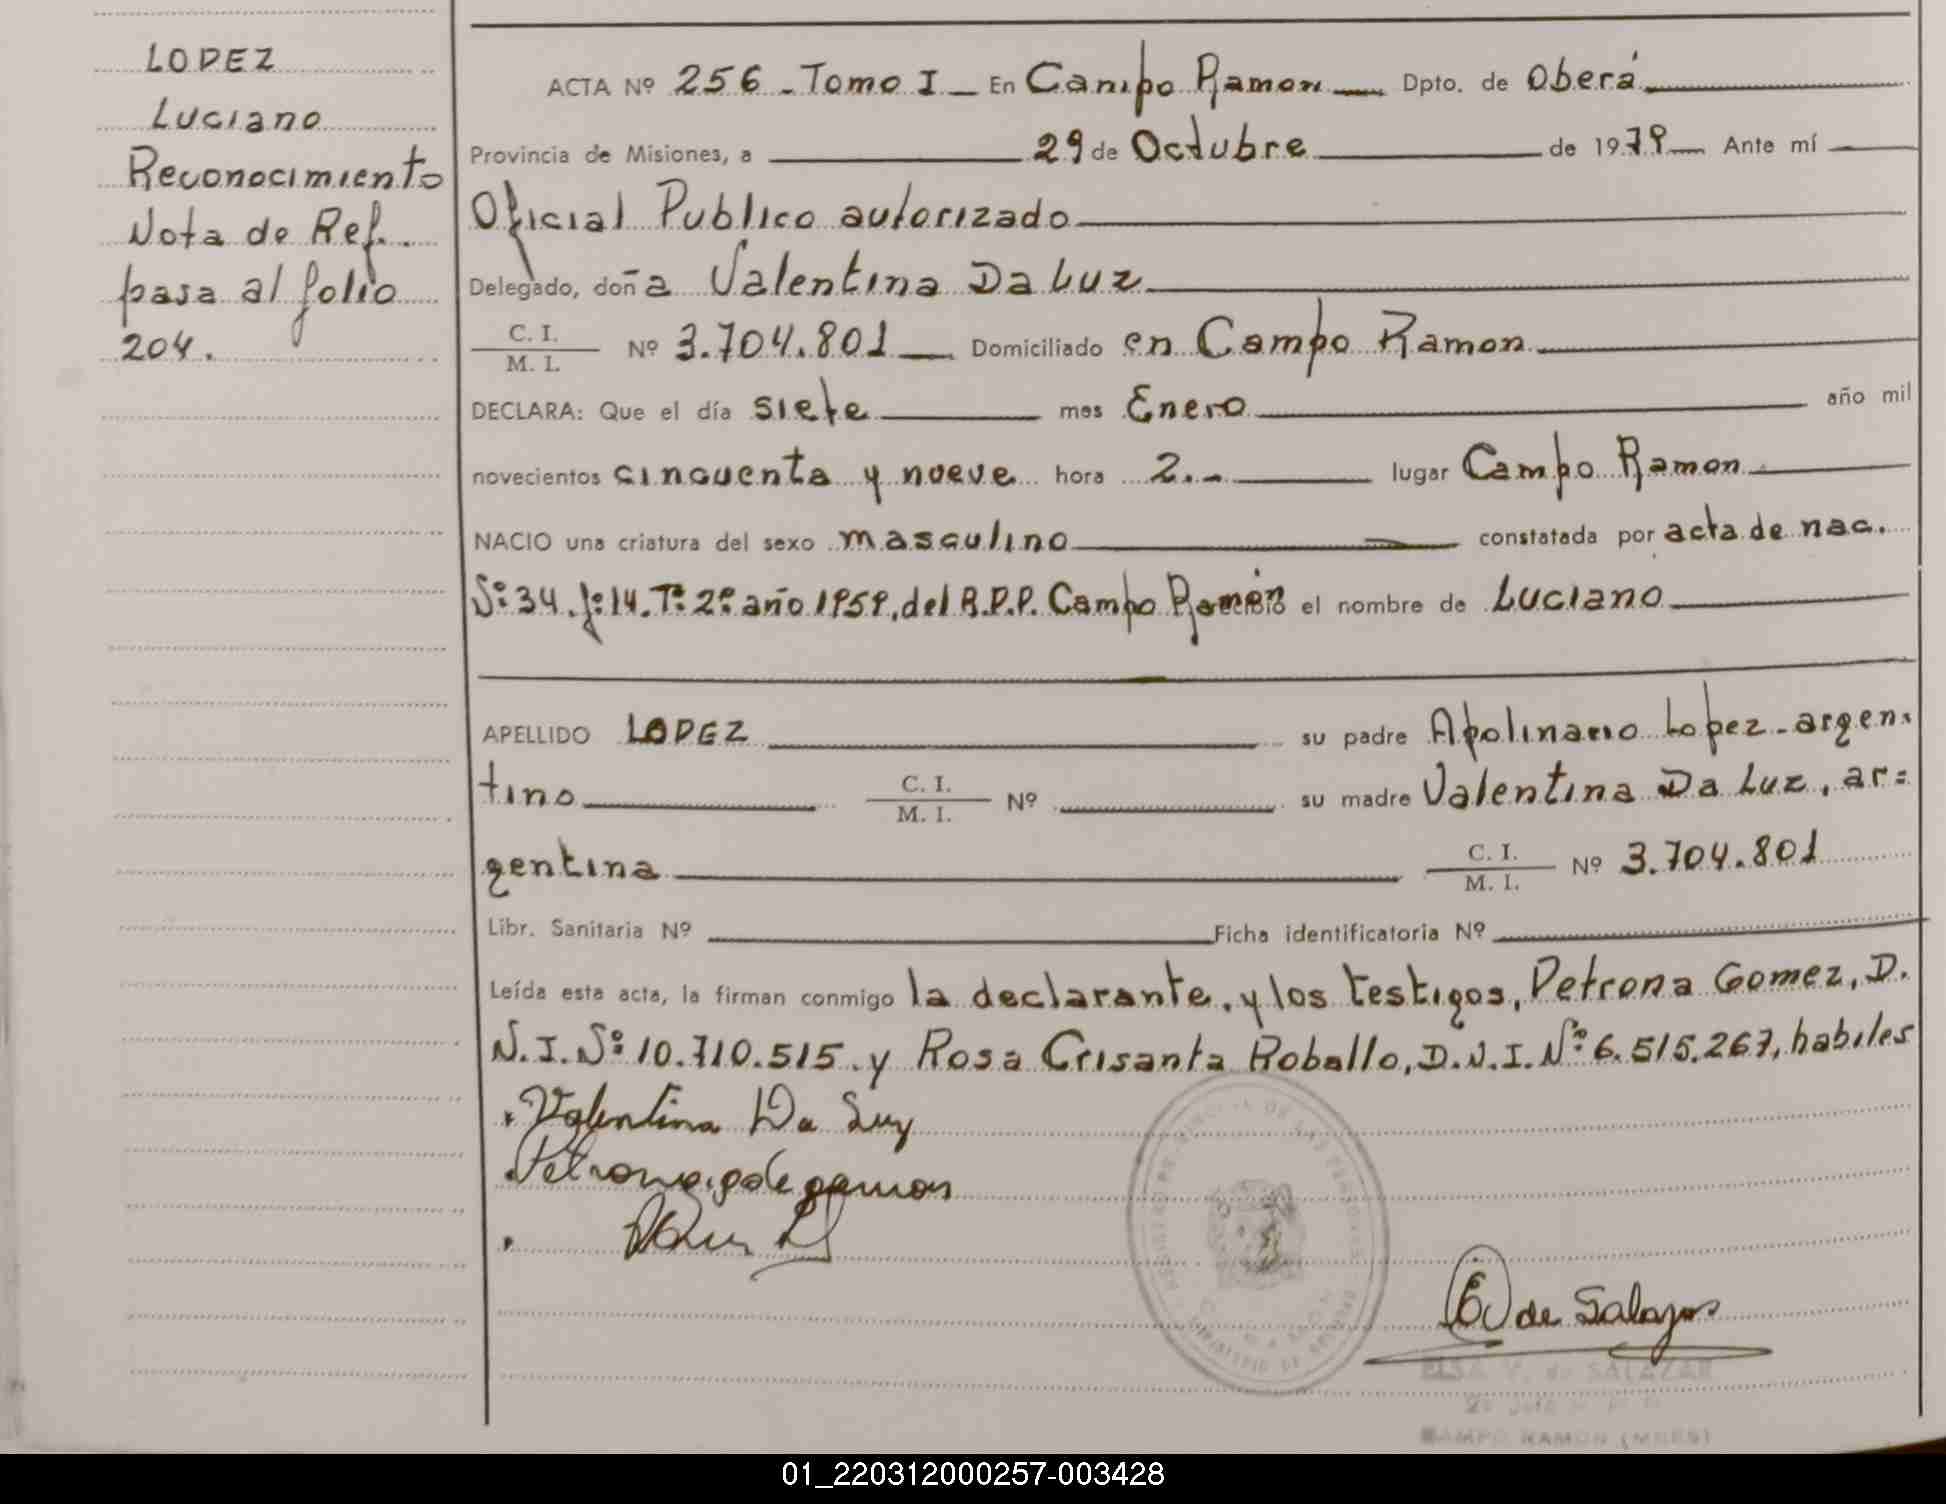 LOPEZ
Luciano
Reconocimiento
Nota de Ref.
pasa al folio
204.
ACTA Nº 256 - Tomo I - En Campo Ramon Dpto. de Oberá
Provincia de Misiones, a 29 de Octubre de 1979 Ante mí
Oficial Publico autorizado
Delegado, doña Valentina Da Luz
C. I.
M. I.
Nº 3.704.801 Domiciliado en Campo Ramon
DECLARA: Que el día siete mes Enero año mil
novecientos cincuenta y nueve hora 2.- lugar Campo Ramon
NACIO una criatura del sexo masculino constatada por acta de nac.
Nº 34. fº 14. Tº 2º año 1959, del R.P.P. Campo Ramón recibió el nombre de Luciano
APELLIDO LOPEZ su padre Apolinario Lopez - argen-
tino C. I. M. I. Nº su madre Valentina Da Luz, ar=
gentina C. I. M. I. Nº 3.704.801
Libr. Sanitaria Nº Ficha identificatoria Nº
Leída esta acta, la firman conmigo la declarante, y los testigos, Petrona Gomez, D.
N.I. Nº 10.710.515. y Rosa Crisanta Roballo, D.N.I. Nº 6.515.267, habiles
Valentina Da Luz
Petrona g de ramos
E V de Salazar
ELSA V. de SALAZAR
CAMPO RAMON (MNES)
01_220312000257-003428